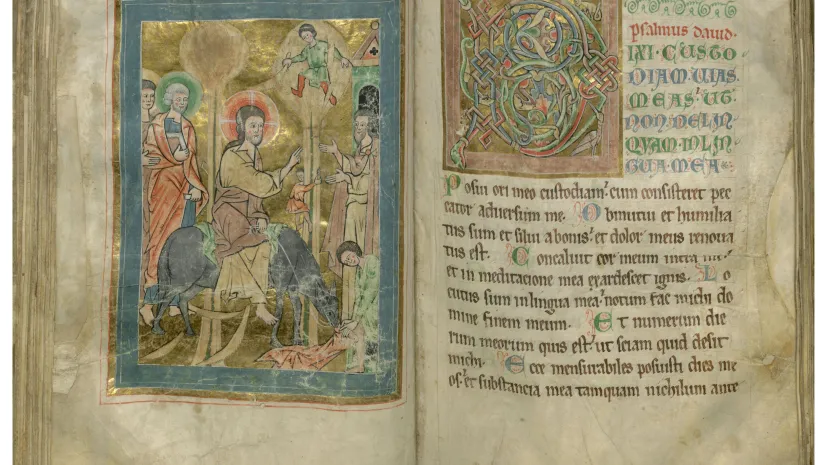 psalmus dauid.
DIXI·CUSTO
DIAM·UIAS
MEAS·UT·
NON·DELIN
QVAM·INLIN
GUA·MEA
Posui ori meo custodiam: cum consisteret pec
cator aduersum me. Obmutui et humilia
tus sum et silui a bonis: et dolor meus renoua
tus est. Concaluit cor meum intra
et in meditacione mea exardescet ignis. Lo
cutus sum in lingua mea: notum fac michi do
mine finem meum. Et numerum die
rum meorum quis est: ut sciam quid desit
michi. Ecce mensurabiles posuisti dies me
os: et substancia mea tamquam nichilum ante